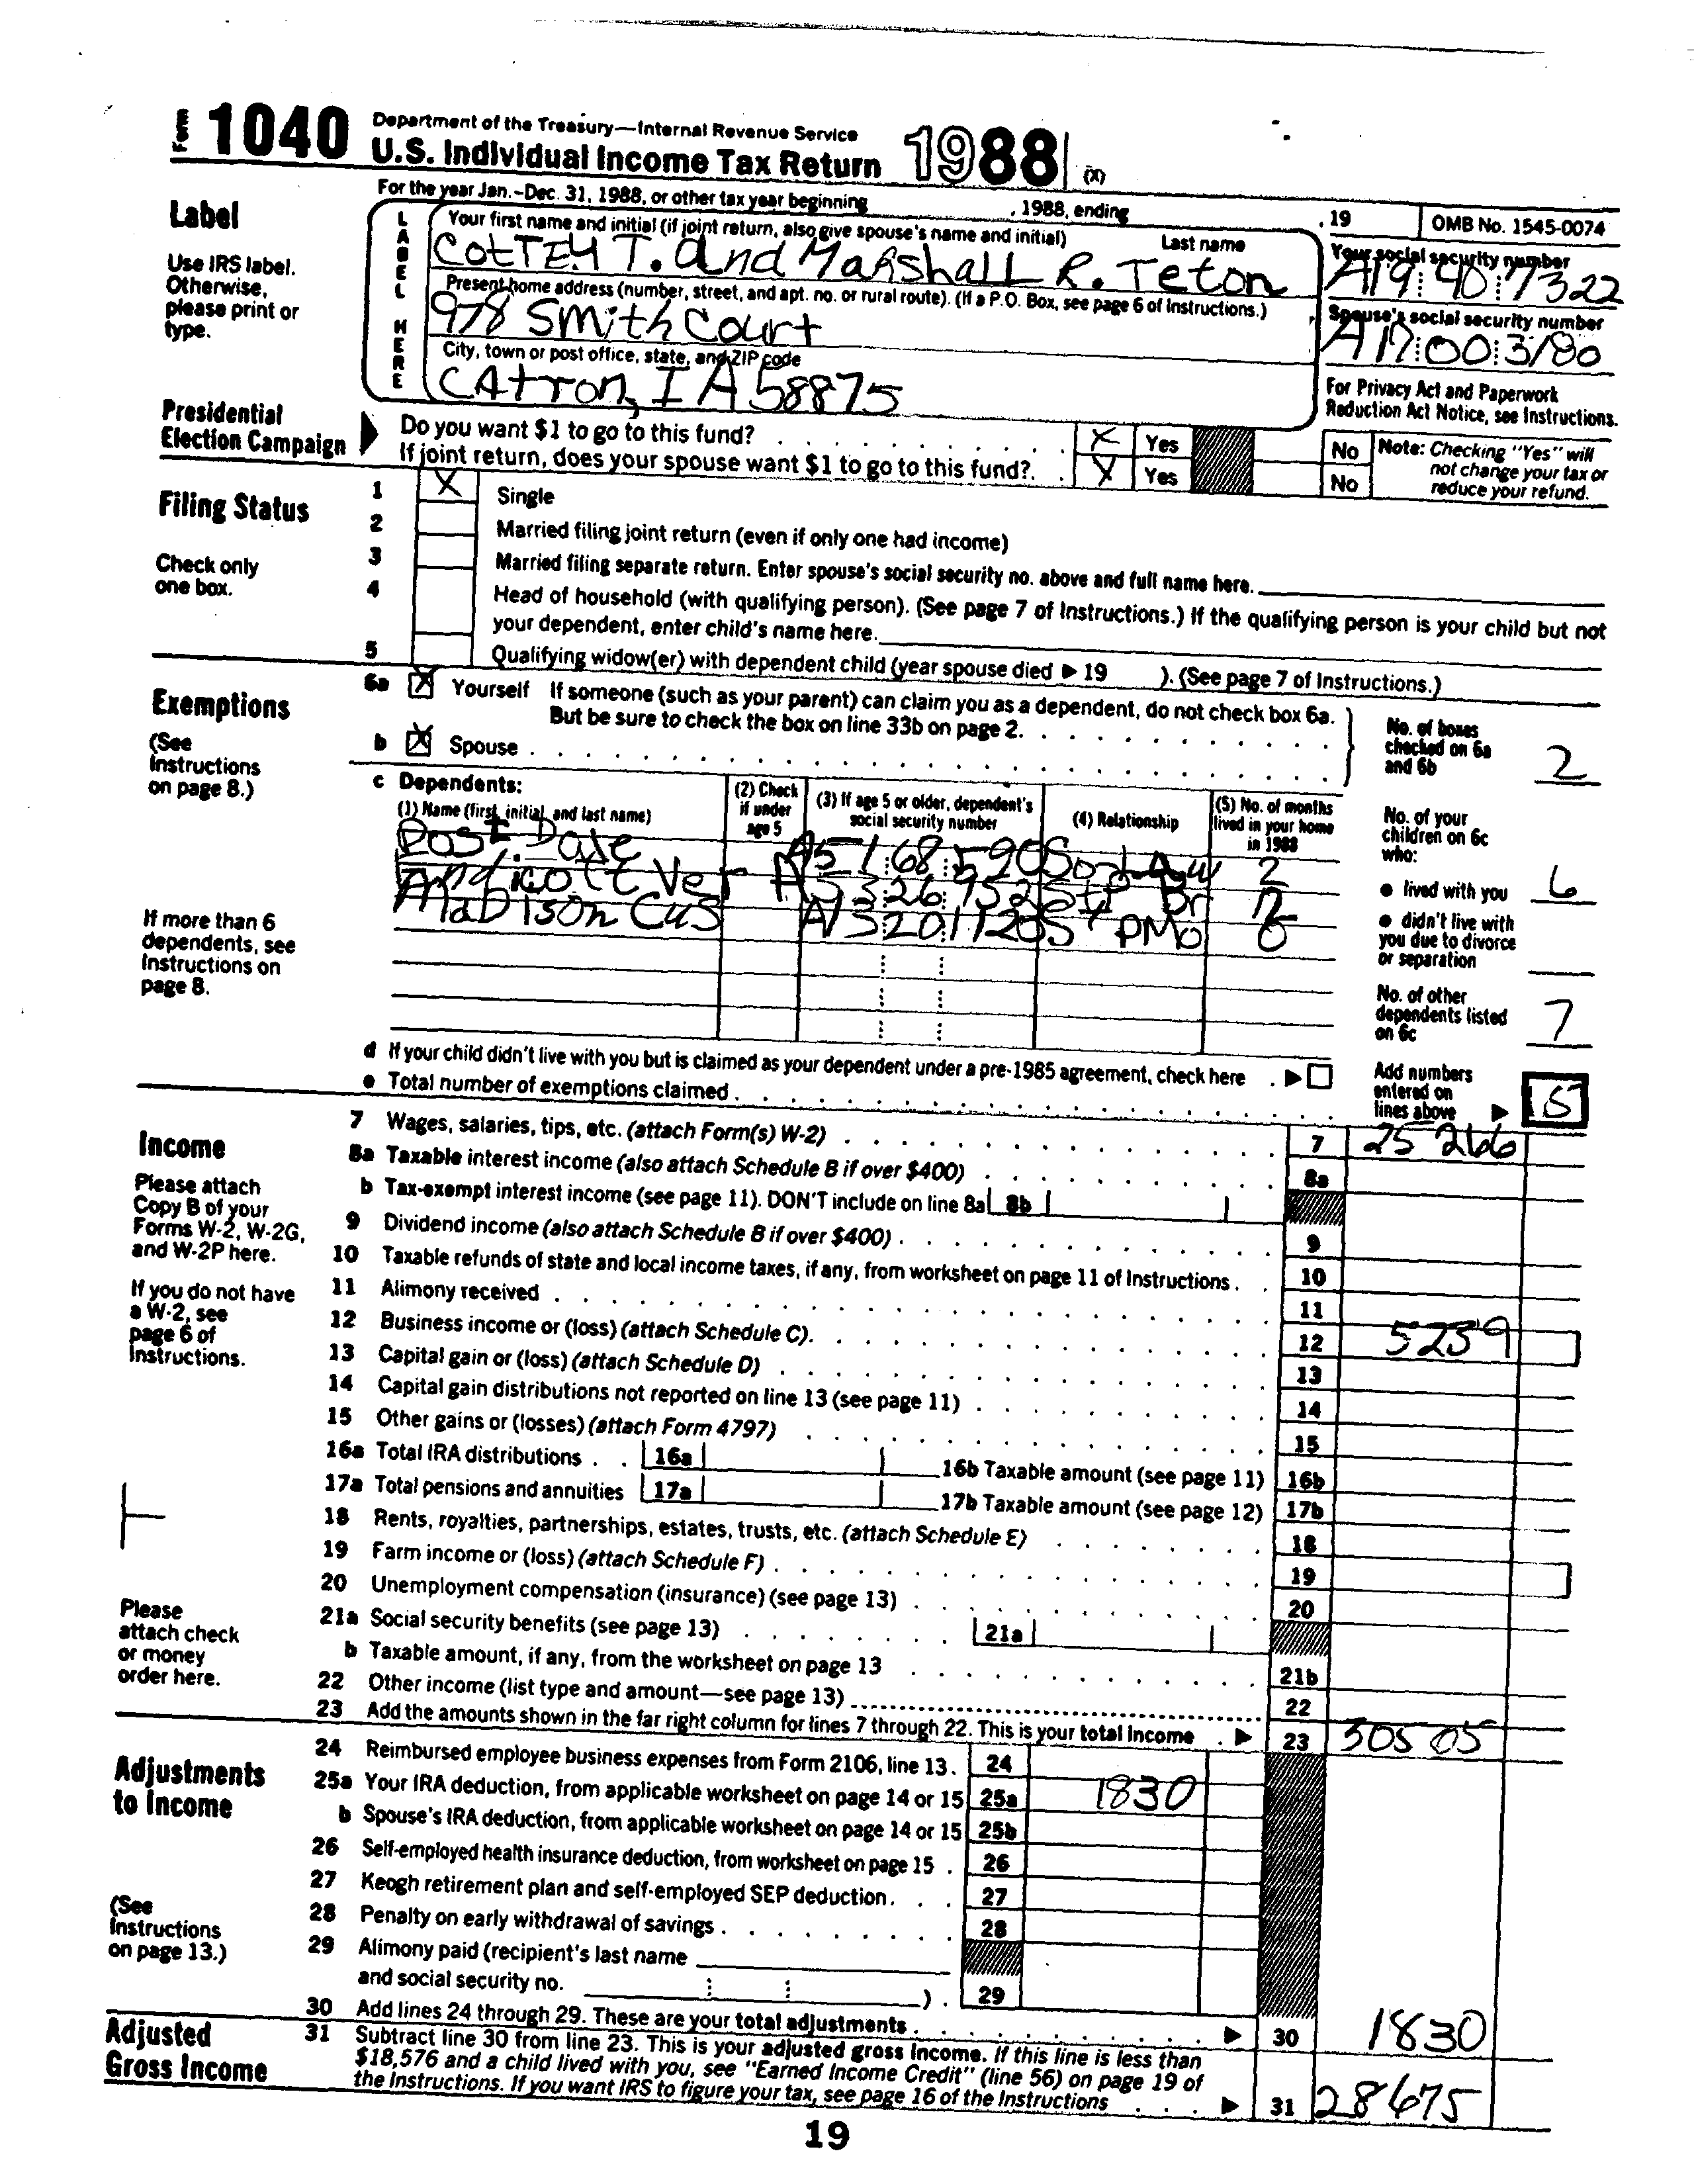 Form 1040 Department of the Treasury—Internal Revenue Service
U.S. Individual Income Tax Return 1988 (X)
For the year Jan.–Dec. 31, 1988, or other tax year beginning , 1988, ending , 19 OMB No. 1545-0074
Label
Use IRS label. Otherwise, please print or type.
LABEL HERE
Your first name and initial (if joint return, also give spouse's name and initial) Last name
COTTEY T. and Marshall R. Teton
Your social security number
A19 40 7322
Present home address (number, street, and apt. no. or rural route). (If a P.O. Box, see page 6 of Instructions.)
978 Smith Court
Spouse's social security number
A17 00 3180
City, town or post office, state, and ZIP code
CAtron, IA 58875
For Privacy Act and Paperwork Reduction Act Notice, see Instructions.
Presidential Election Campaign
Do you want $1 to go to this fund? X Yes No
If joint return, does your spouse want $1 to go to this fund? X Yes No
Note: Checking "Yes" will not change your tax or reduce your refund.
Filing Status
Check only one box.
1 X Single
2 Married filing joint return (even if only one had income)
3 Married filing separate return. Enter spouse's social security no. above and full name here.
4 Head of household (with qualifying person). (See page 7 of Instructions.) If the qualifying person is your child but not
your dependent, enter child's name here.
5 Qualifying widow(er) with dependent child (year spouse died ▶ 19 ). (See page 7 of Instructions.)
Exemptions
(See Instructions on page 8.)
6a X Yourself If someone (such as your parent) can claim you as a dependent, do not check box 6a.
But be sure to check the box on line 33b on page 2.
b X Spouse
No. of boxes checked on 6a and 6b 2
c Dependents:
(1) Name (first, initial, and last name) (2) Check if under age 5 (3) If age 5 or older, dependent's social security number (4) Relationship (5) No. of months lived in your home in 1988
Post. Dale A51 68 5905 2
Endicott Ver
Madison Cus A13 20 1120 StPMo
If more than 6 dependents, see Instructions on page 8.
No. of your children on 6c who:
● lived with you 6
● didn't live with you due to divorce or separation
No. of other dependents listed on 6c 7
d If your child didn't live with you but is claimed as your dependent under a pre-1985 agreement, check here ▶
e Total number of exemptions claimed
Add numbers entered on lines above ▶ 15
Income
Please attach Copy B of your Forms W-2, W-2G, and W-2P here.
If you do not have a W-2, see page 6 of Instructions.
7 Wages, salaries, tips, etc. (attach Form(s) W-2) 7 25 266
8a Taxable interest income (also attach Schedule B if over $400) 8a
b Tax-exempt interest income (see page 11). DON'T include on line 8a 8b
9 Dividend income (also attach Schedule B if over $400) 9
10 Taxable refunds of state and local income taxes, if any, from worksheet on page 11 of Instructions 10
11 Alimony received 11
12 Business income or (loss) (attach Schedule C) 12 5239
13 Capital gain or (loss) (attach Schedule D) 13
14 Capital gain distributions not reported on line 13 (see page 11) 14
15 Other gains or (losses) (attach Form 4797) 15
16a Total IRA distributions 16a 16b Taxable amount (see page 11) 16b
17a Total pensions and annuities 17a 17b Taxable amount (see page 12) 17b
18 Rents, royalties, partnerships, estates, trusts, etc. (attach Schedule E) 18
19 Farm income or (loss) (attach Schedule F) 19
20 Unemployment compensation (insurance) (see page 13) 20
Please attach check or money order here.
21a Social security benefits (see page 13) 21a
b Taxable amount, if any, from the worksheet on page 13 21b
22 Other income (list type and amount—see page 13) 22
23 Add the amounts shown in the far right column for lines 7 through 22. This is your total income ▶ 23 305 05
Adjustments to Income
(See Instructions on page 13.)
24 Reimbursed employee business expenses from Form 2106, line 13. 24
25a Your IRA deduction, from applicable worksheet on page 14 or 15 25a 1830
b Spouse's IRA deduction, from applicable worksheet on page 14 or 15 25b
26 Self-employed health insurance deduction, from worksheet on page 15 26
27 Keogh retirement plan and self-employed SEP deduction 27
28 Penalty on early withdrawal of savings 28
29 Alimony paid (recipient's last name
and social security no. ) 29
30 Add lines 24 through 29. These are your total adjustments ▶ 30 1830
Adjusted Gross Income
31 Subtract line 30 from line 23. This is your adjusted gross income. If this line is less than
$18,576 and a child lived with you, see "Earned Income Credit" (line 56) on page 19 of
the Instructions. If you want IRS to figure your tax, see page 16 of the Instructions ▶ 31 28675
19